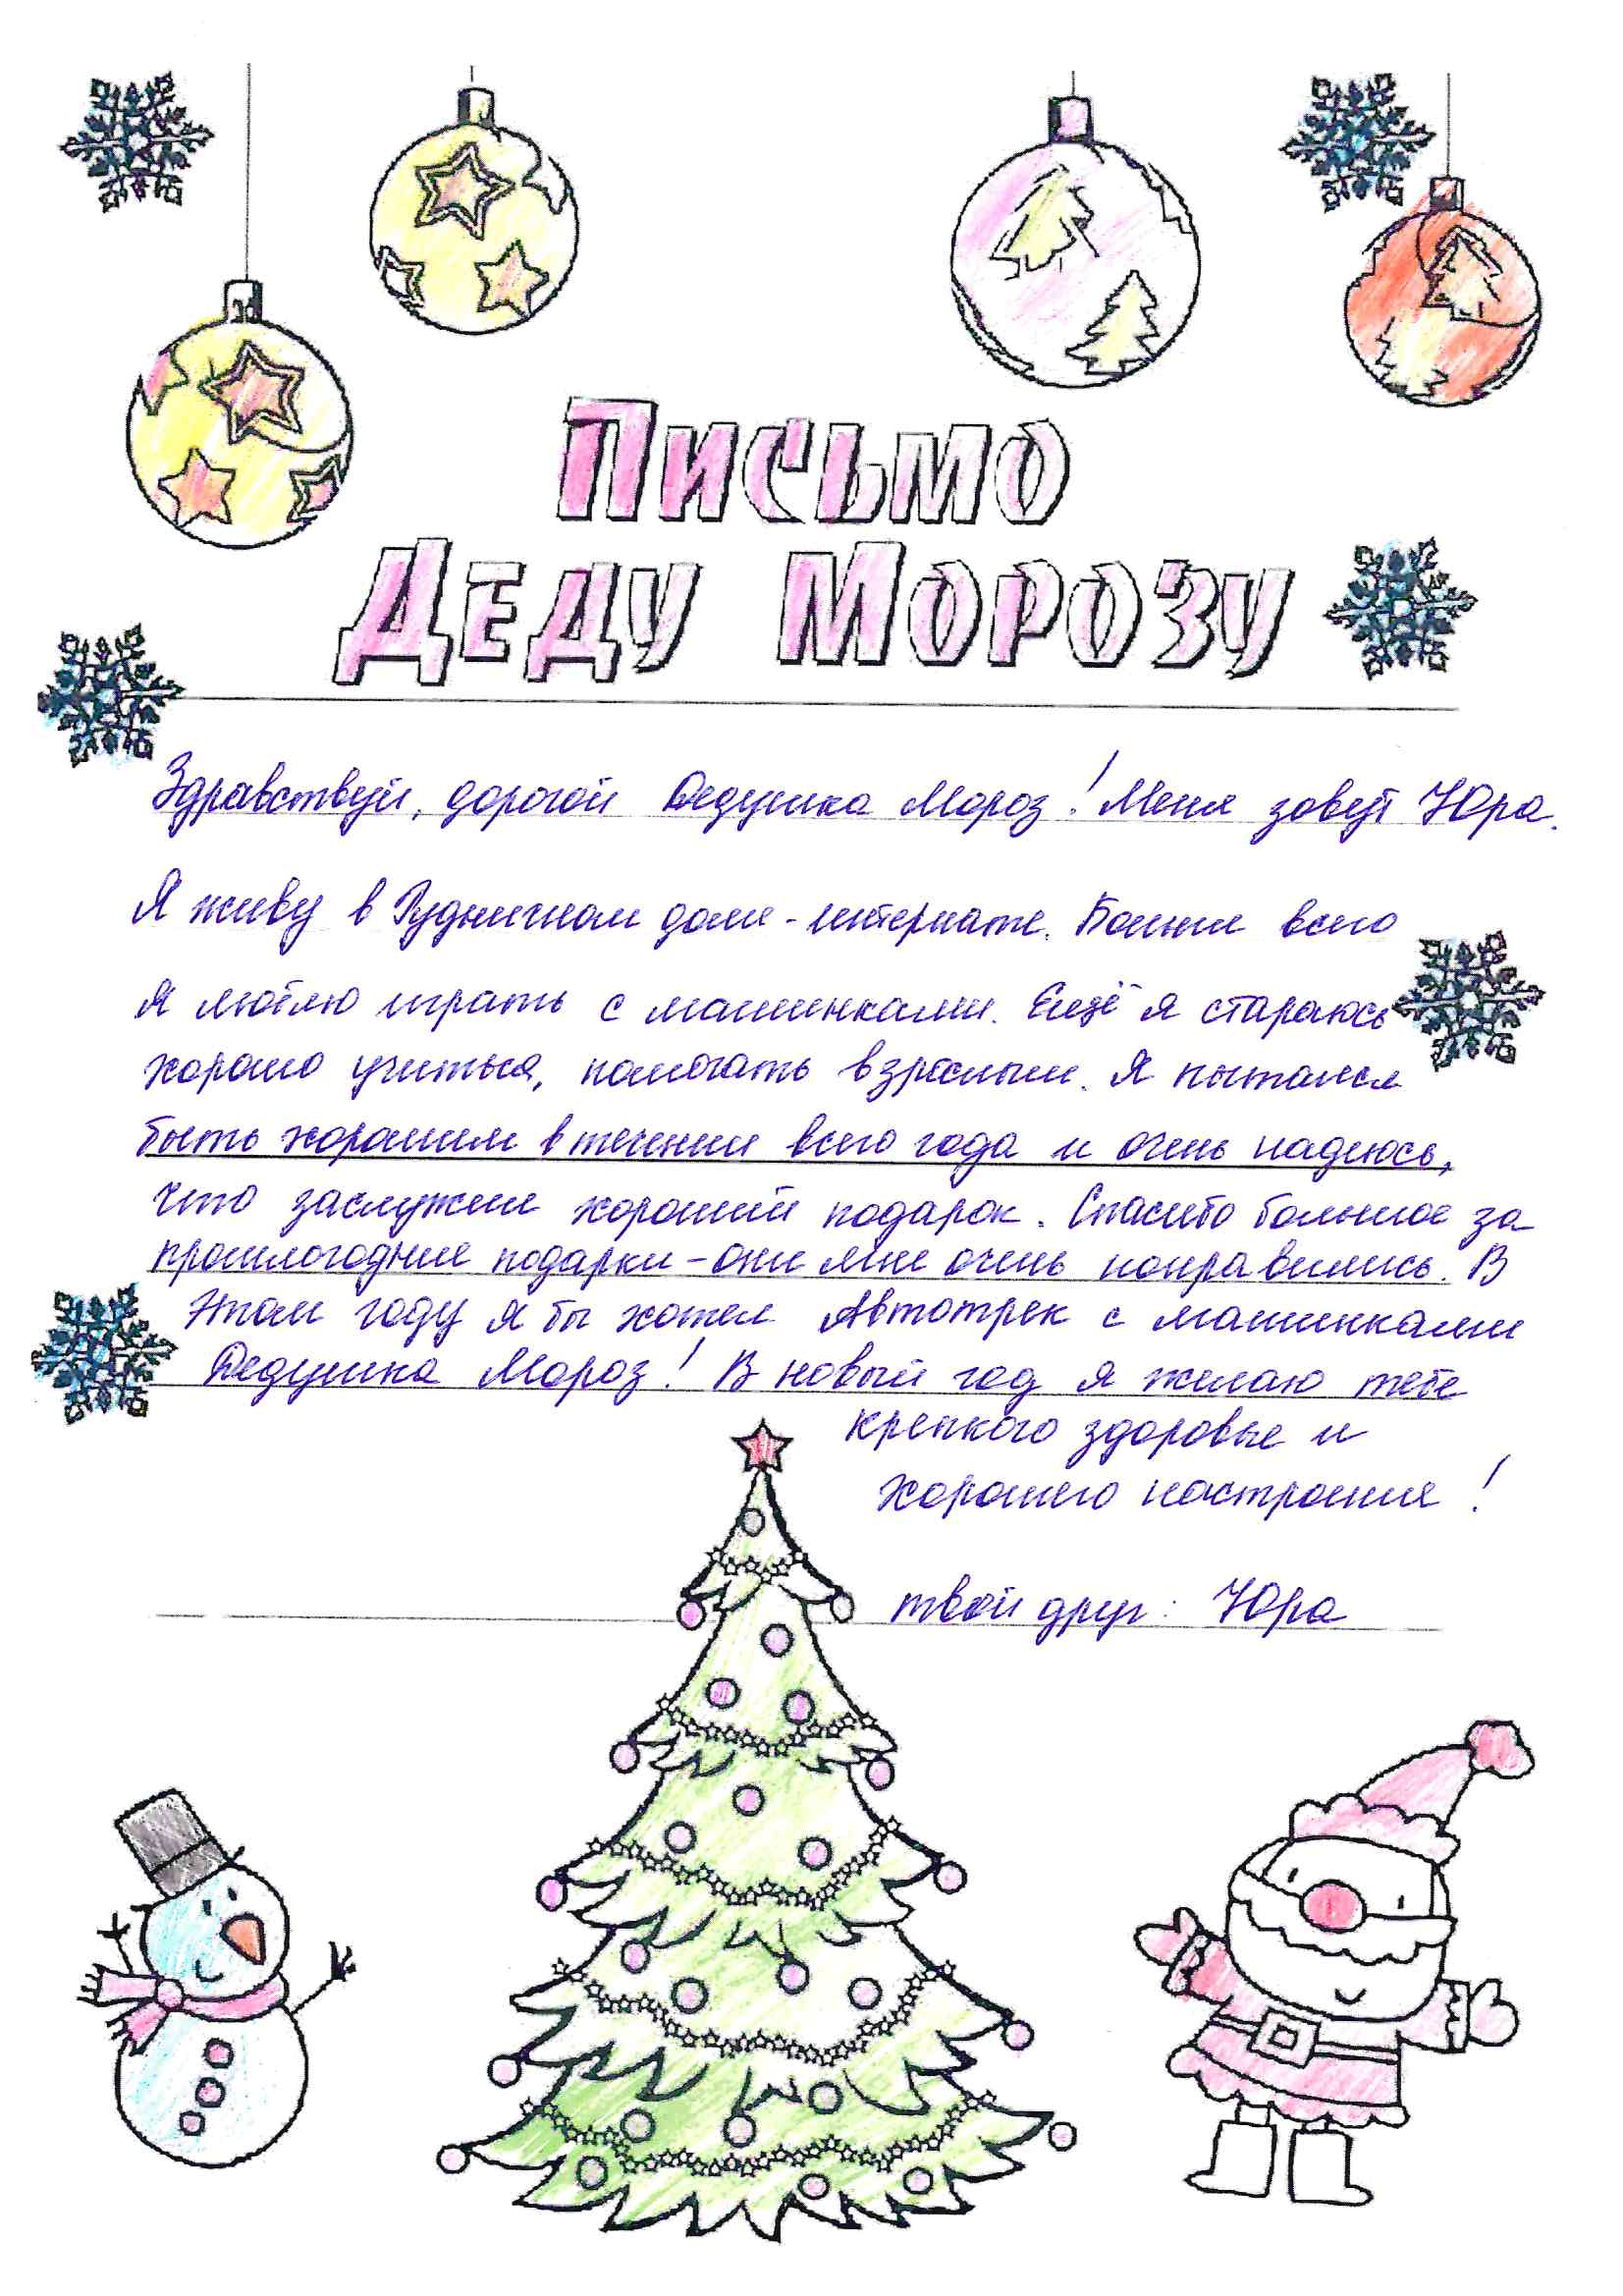 Письмо
Деду Морозу
Здравствуй, дорогой Дедушка Мороз! Меня зовут Юра.
Я живу в Рудничном доме-интернате. Больше всего
я люблю играть с машинками. Ещё я стараюсь
хорошо учиться, помогать взрослым. Я пытался
быть хорошим в течении всего года и очень надеюсь,
что заслужил хороший подарок. Спасибо большое за
прошлогодние подарки - они мне очень понравились. В
этом году я бы хотел Автотрек с машинками
Дедушка Мороз! В новый год я желаю тебе
крепкого здоровье и
хорошего настроения!
твой друг: Юра